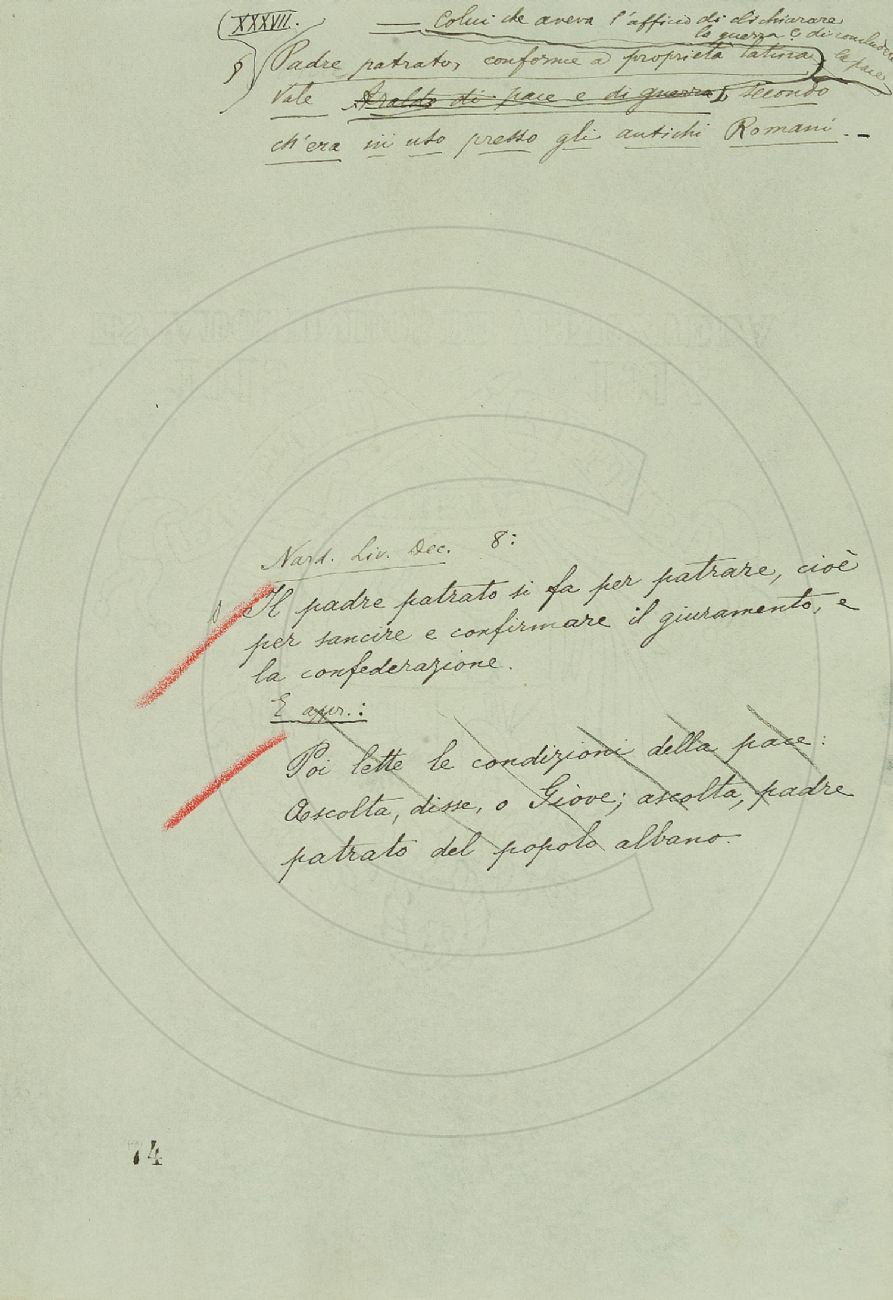 XXXVII.
Colui che aveva l'afficio di dichiarare
la guerra e di concludere
la pace
§ Padre patrato, conforme a proprietà latina
Vale Araldo di pace e di guerra, secondo
ch'era in uso presso gli antichi Romani. –
Nard. Liv. Dec. 8:
Il padre patrato si fa per patrare, cioè
per sancire e confirmare il giuramento, e
la confederazione.
E appr.:
Poi lette le condizioni della pace:
Ascolta, disse, o Giove; ascolta, padre
patrato del popolo albano.
74